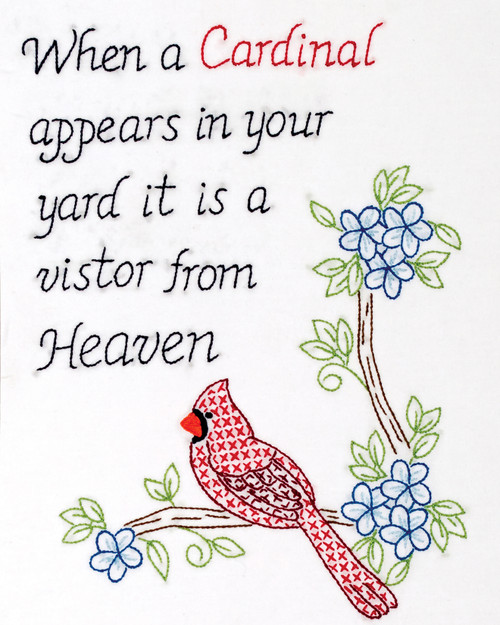 When a Cardinal
appears in your
yard it is a
vistor from
Heaven